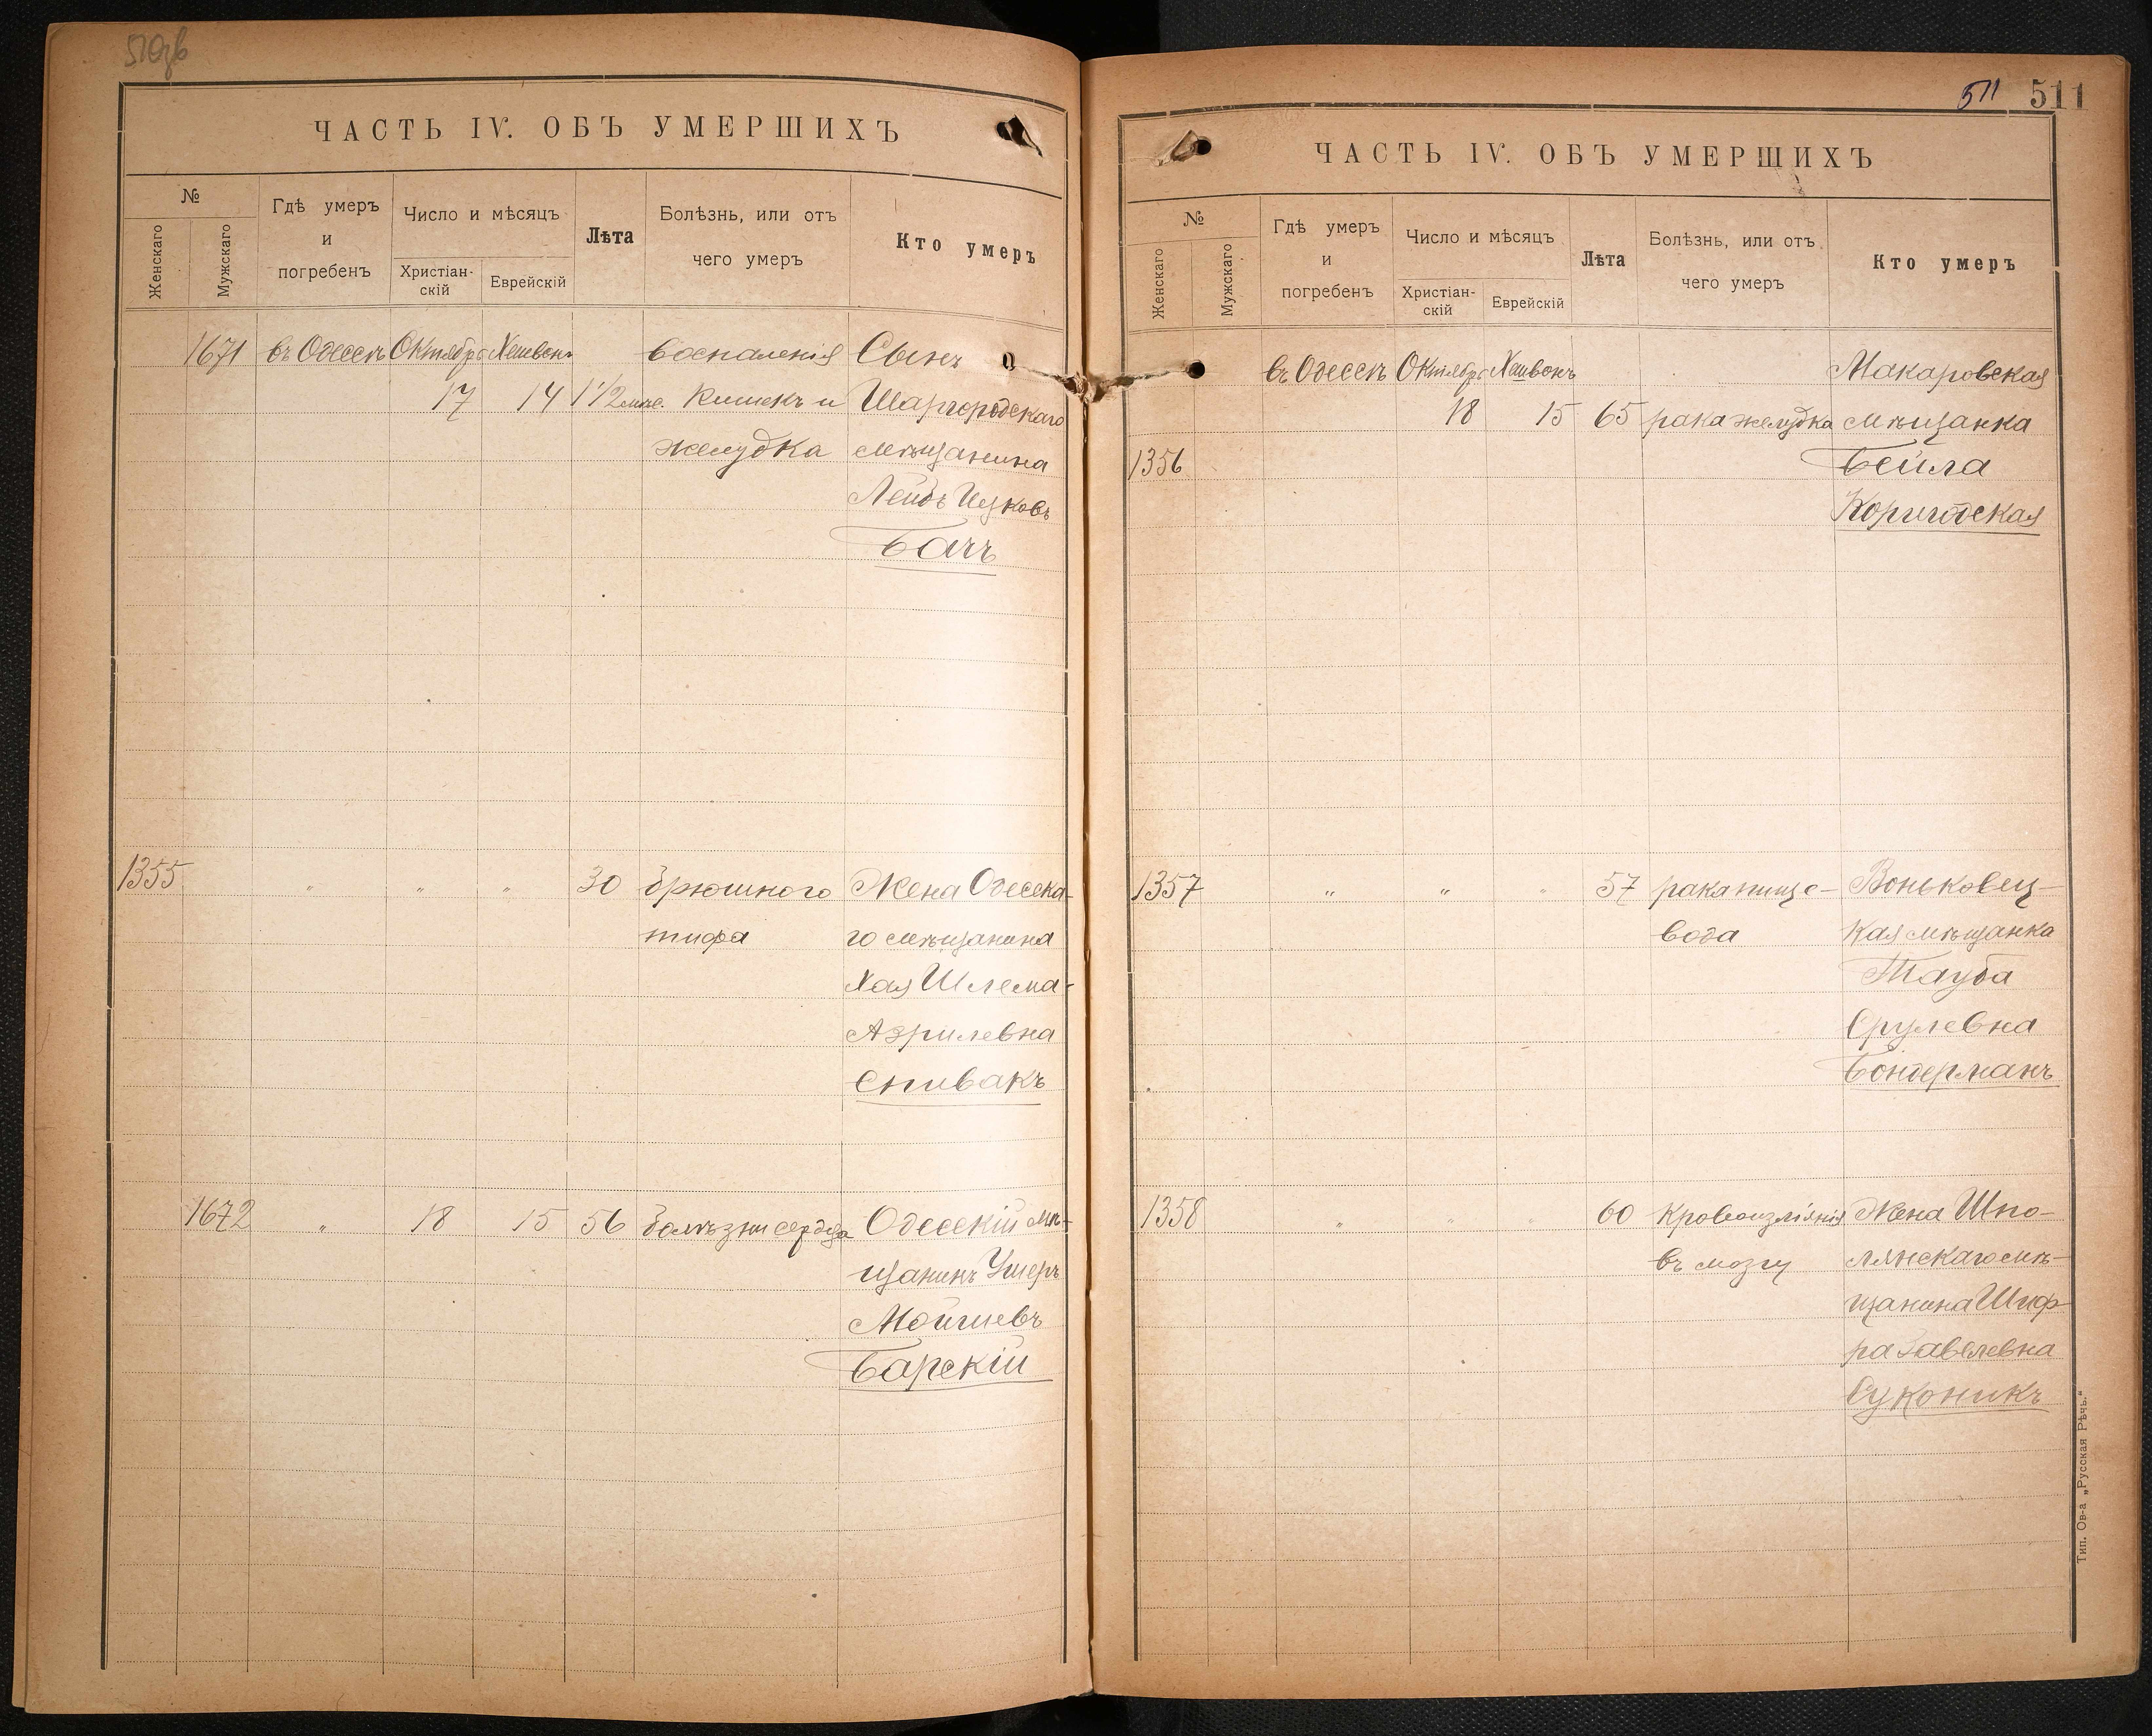 ЧАСТЬ IV. ОБЪ УМЕРШИХЪ
№
Женскаго
Мужскаго
Гдѣ умеръ
и
погребенъ
Число и мѣсяцъ
Христіан-
скій
Еврейскій
Лѣта
Болѣзнь, или отъ
чего умеръ
Кто умеръ
1671 въ Одессѣ Октябрь Хешвонъ воспаленія Сынъ
17 14 1 1/2 мѣс. Кишекъ и Шаргородскаго
желудка мѣщанина
Лейбъ Ицковъ
Бачъ
1355 " " " 30 брюшного Жена Одесска-
тифа го мѣщанина
Хая Шлема-
Азрилевна
Спивакъ
1672 " 18 15 56 болѣзни сердца Одесскій мѣ-
щанинъ Ушеръ
Мойшевъ
Барскій
511 511
ЧАСТЬ IV. ОБЪ УМЕРШИХЪ
№
Женскаго
Мужскаго
Гдѣ умеръ
и
погребенъ
Число и мѣсяцъ
Христіан-
скій
Еврейскій
Лѣта
Болѣзнь, или отъ
чего умеръ
Кто умеръ
въ Одессѣ Октябрь Хешвонъ Макаровская
18 15 65 рака желудка мѣщанка
1356 Бейла
1357 " " " 57 рака пище- Воньковец-
вода кая мѣщанка
Тауба
Срулевна
Бондерманъ
1358 " " " 60 Кровоизліянія Жена Шпо-
въ мозгу лянскаго мѣ-
щанина Шиф
ра Завелевна
Суконикъ
Тип. Ов-а „Русская Рѣчь."